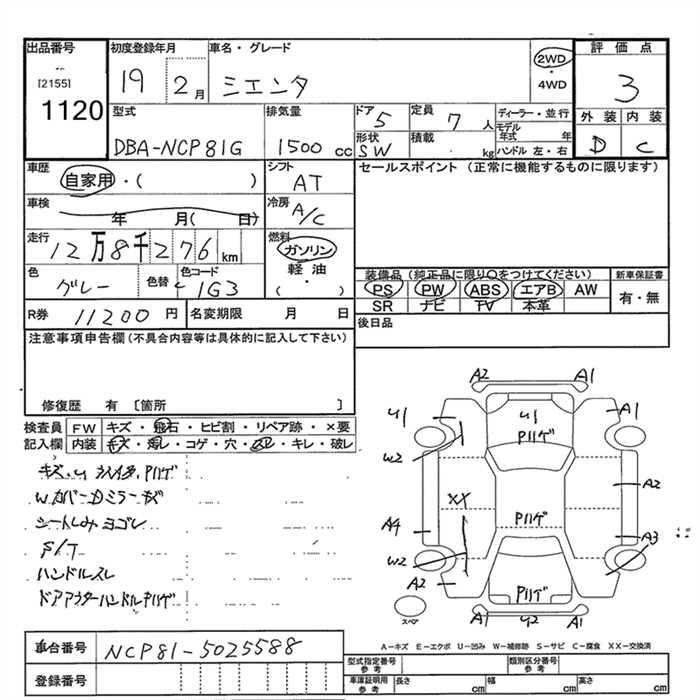 出品番号
[2155]
1120
初度登録年月
19 2月
車名・グレード
シエンタ
2WD
・
4WD
評価点
3
外装 内装
D C
型式
DBA-NCP81G
排気量
1500 cc
ドア
5
定員
7人
ディーラー・並行
モデル年式 年
形状
SW
積載
kg
ハンドル 左・右
車歴
自家用・( )
シフト
AT
セールスポイント (正常に機能するものに限ります)
車検
年 月( 日)
冷房
A/C
走行
12万8千276km
燃料
ガソリン
軽油
・
( )
色
グレー
色替
色コード
1G3
装備品 (純正品に限り○をつけてください)
PS PW ABS エアB AW
SR ナビ TV 本革
新車保証書
有・無
R券 11200円
名変期限 月 日
後日品
注意事項申告欄(不具合内容等は具体的に記入して下さい)
修復歴 有 〔箇所 〕
検査員
記入欄
FW キズ・飛石・ヒビ割・リペア跡・×要
内装 キズ・汚レ・コゲ・穴・スレ・キレ・破レ
キズ.U
Pハゲ
Wカバー Dミラーキズ
シートしみ ヨゴレ
S/T
ハンドルスレ
ドアアウターハンドルPハゲ
A2 A1
U1 U1 A1
Pハゲ
W2
XX A2
Pハゲ
A4 A3
W2
A2
Pハゲ
A1 U2 A1
スペア
A-キズ E-エクボ U-凹み W-補修跡 S-サビ C-腐食 XX-交換済
車台番号 NCP81-5025588
登録番号
型式指定番号
参考
類別区分番号
参考
車庫証明用
参考
長さ cm 幅 cm 高さ cm